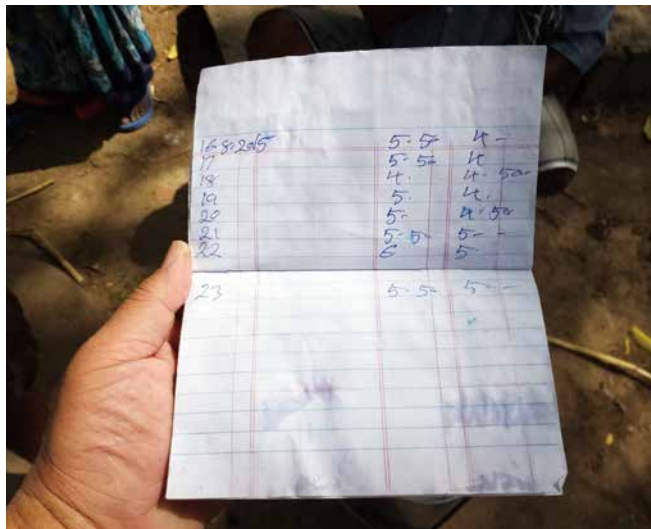 16.8.2015 5.50 4-
17 5.50 4
18 4. 4.50
19 5. 4.
20 5- 4.50
21 5.50 5--
22 6 5-
23 5.50 5--